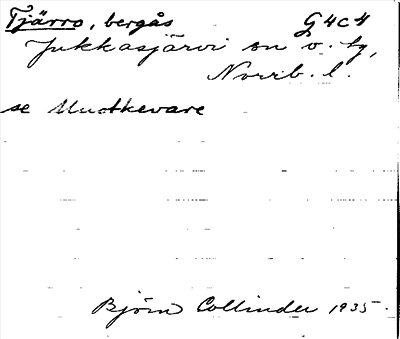 Tjärro, bergås G4c4
Jukkasjärvi sn o. tg,
Norrb. l.
se Muotkevare
Björn Collinder 1935.